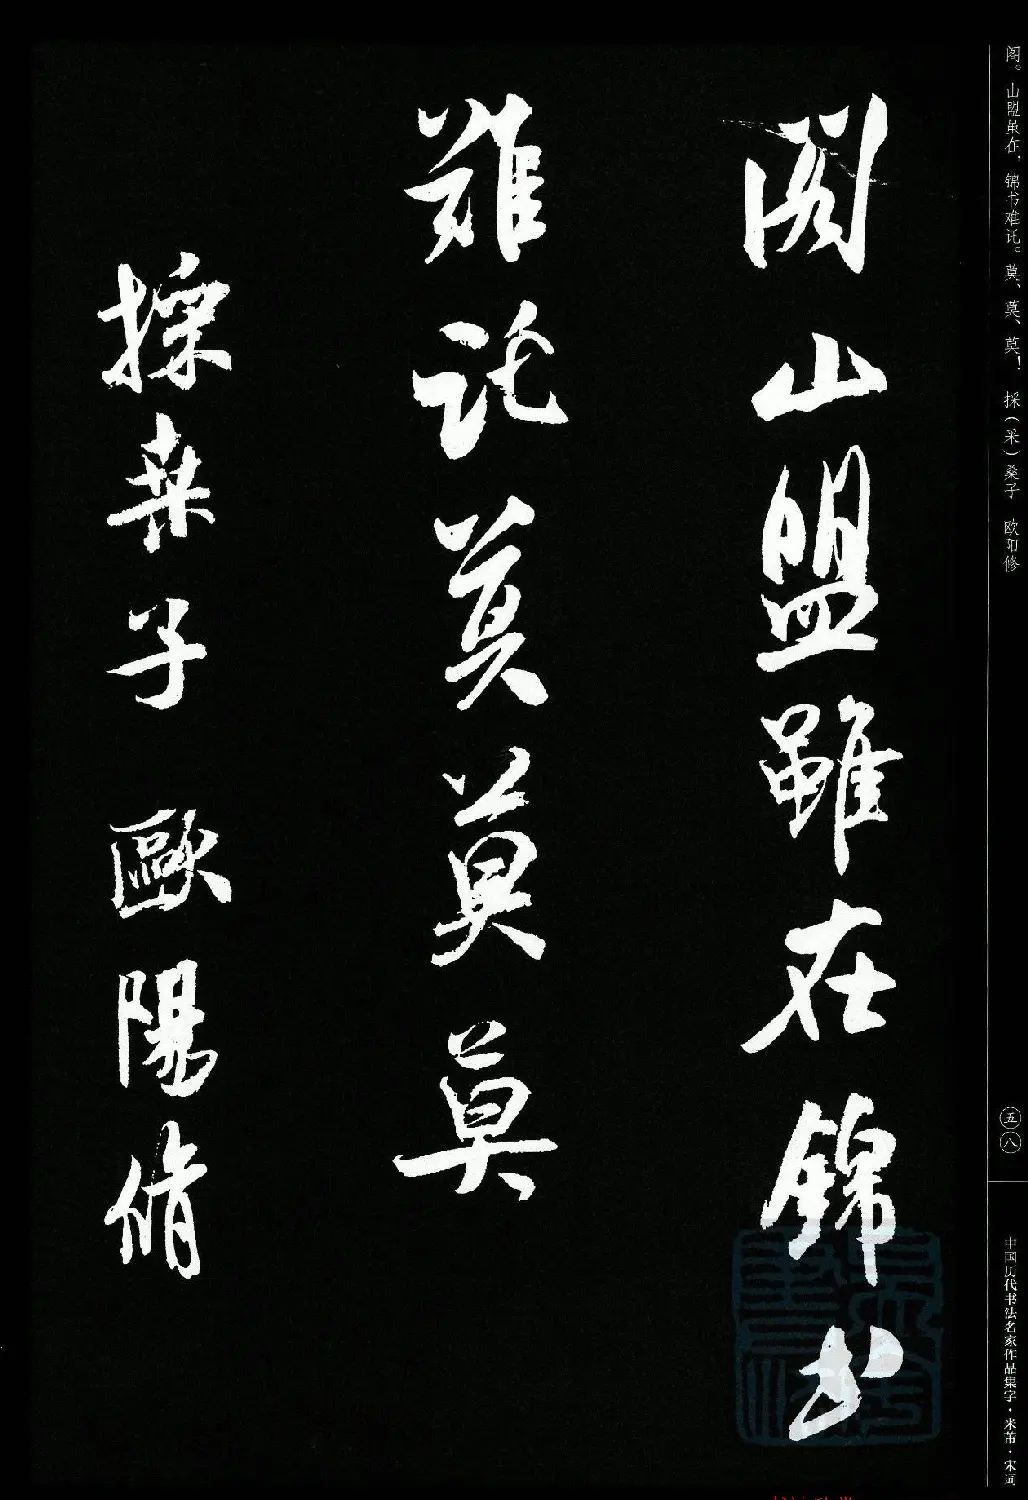 阁。山盟虽在，锦书难托。莫、莫、莫！ 採（采）桑子 欧阳修
五八
中国历代书法名家作品集字·米芾·宋词
閣山盟雖在錦书
難託莫莫莫
採桑子 歐陽脩